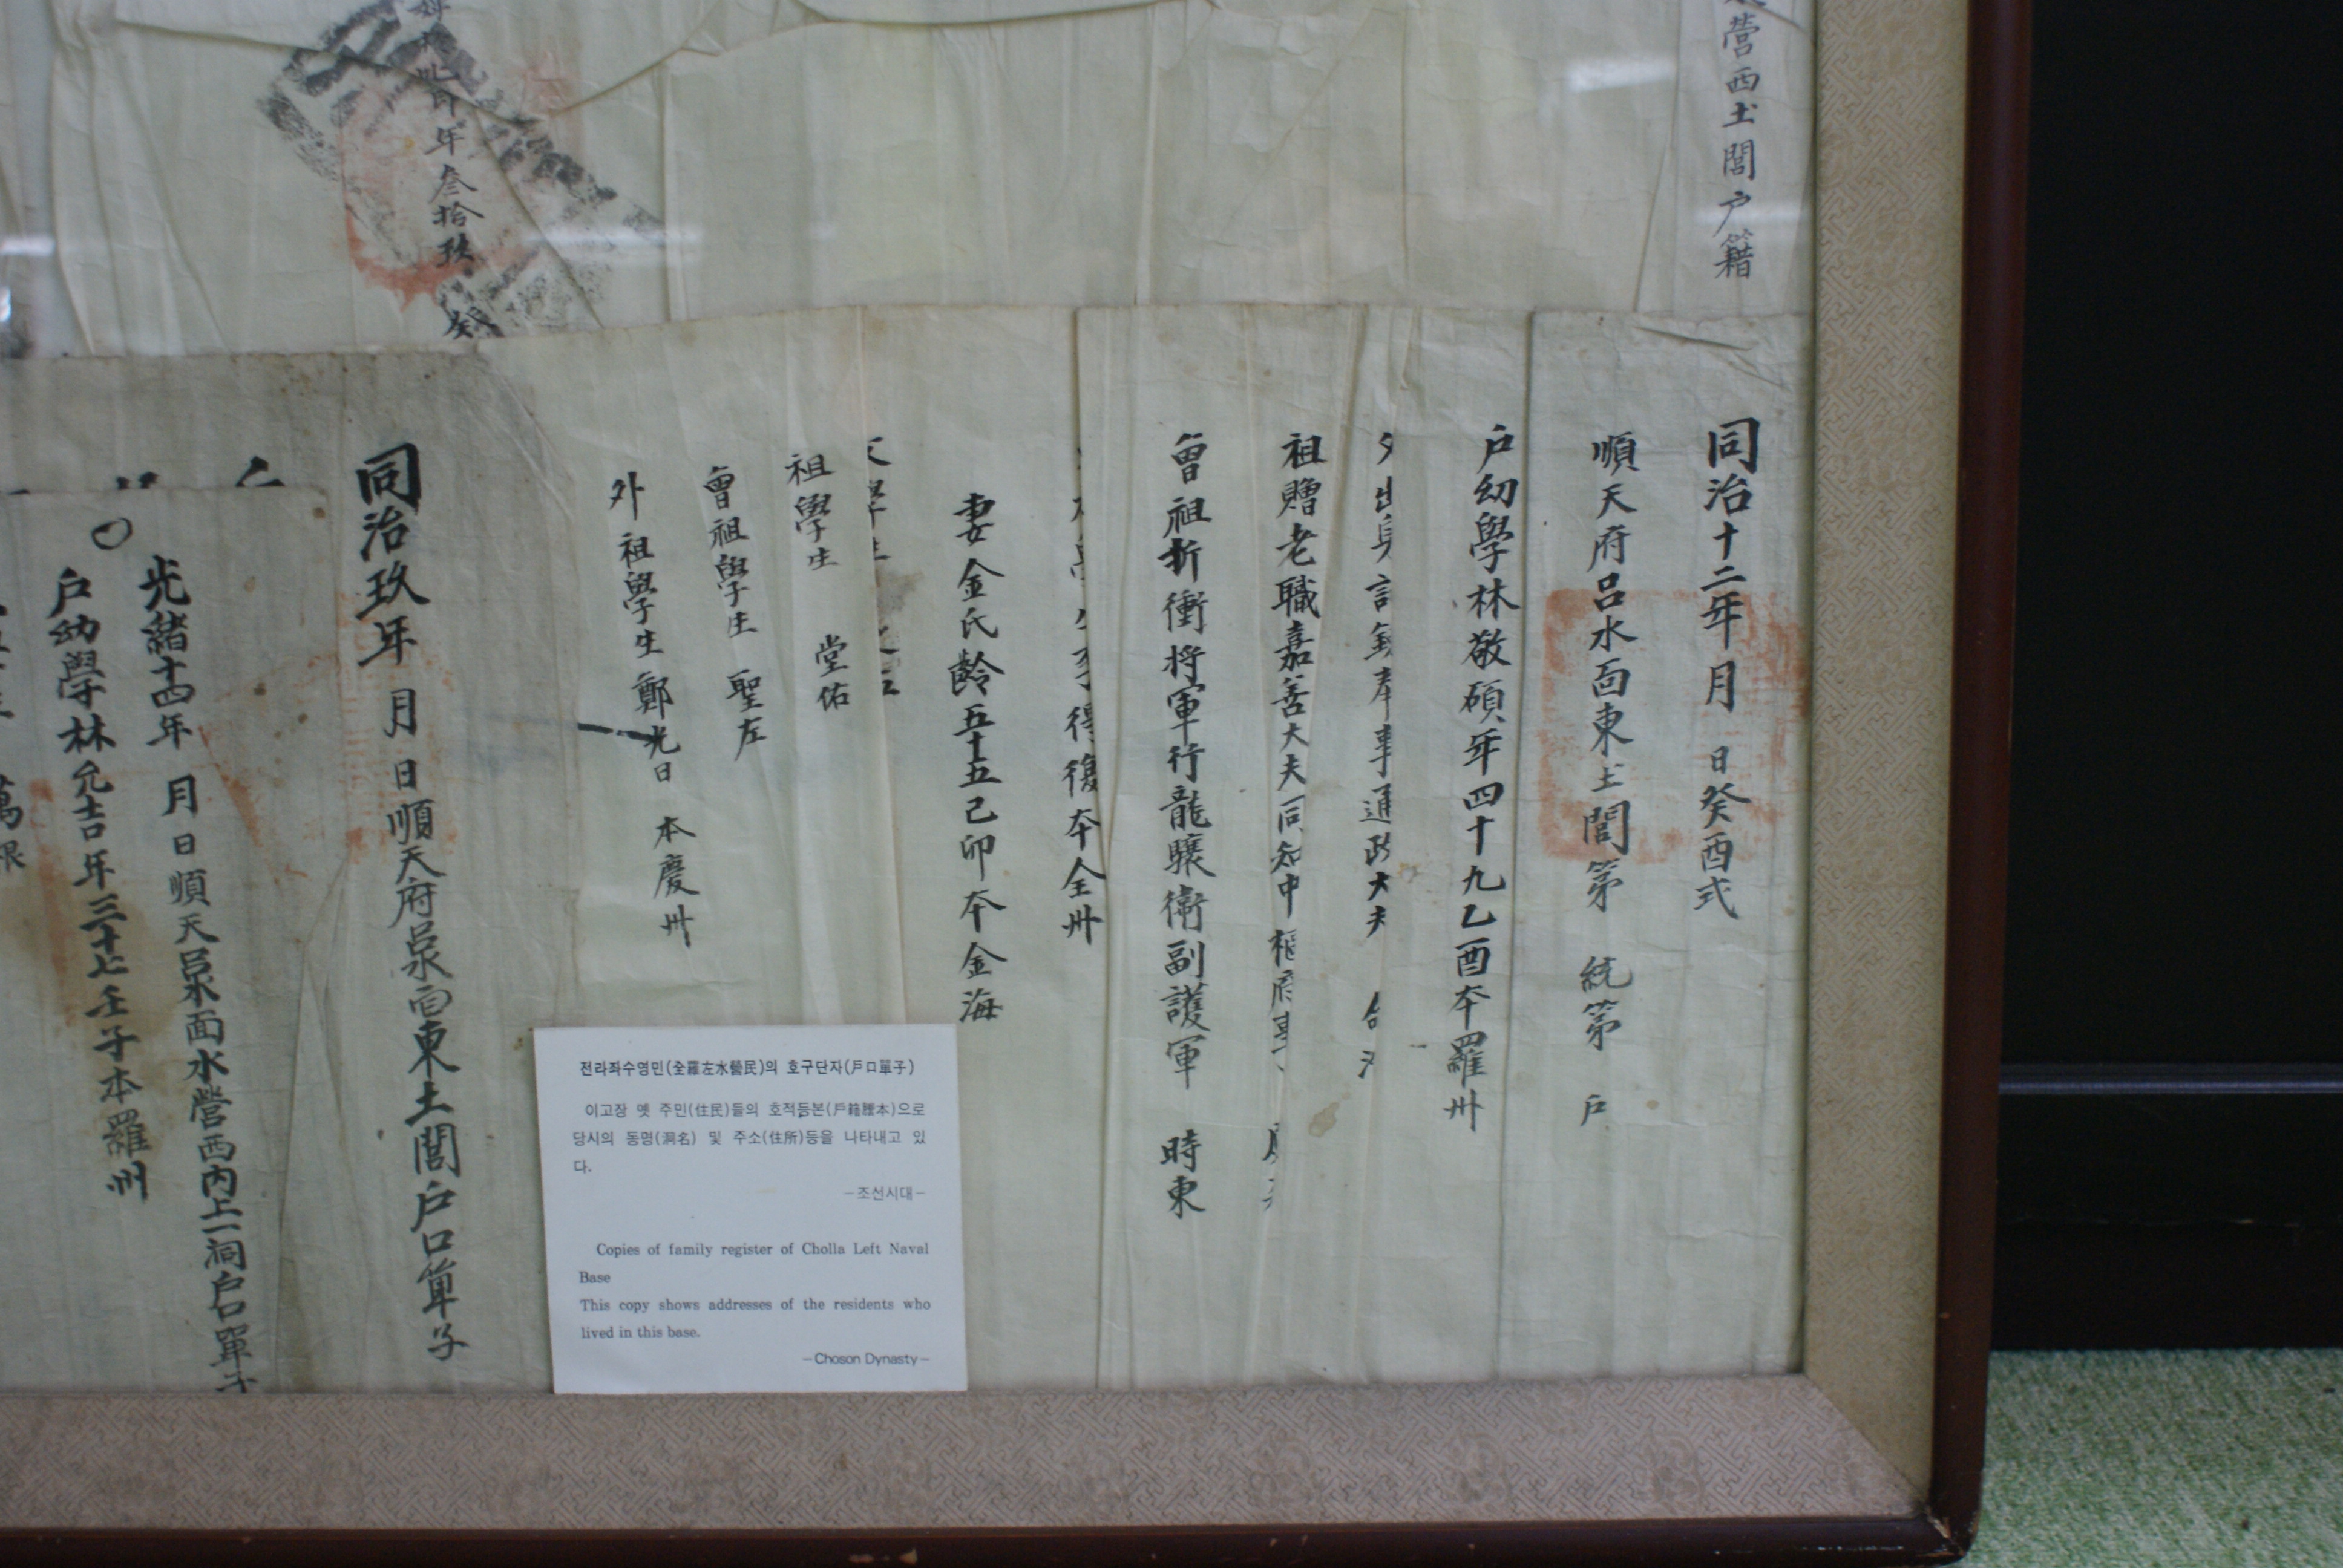 營西土閭户籍
年叁拾玖
癸
同治十二年 月 日癸酉式
順天府呂水面東土閭第 統第 户
户幼學林敬碩年四十九乙酉本羅州
出身訓 奉事通政大夫
祖贈老職嘉善大夫同知中樞府事
曾祖折衝將軍行龍驤衛副護軍 時東
得復本全州
妻金氏齡五十五己卯本金海
祖學生 堂佑
曾祖學生 聖左
外祖學生鄭光日 本慶州
同治玖年 月 日順天府呂水面東土閭户口單子
光緒十四年 月 日順天呂水面水營西內上一洞户口單子
户幼學林允吉年三十七壬子本羅州
전라좌수영민(全羅左水營民)의 호구단자(戶口單子)
이고장 옛 주민(住民)들의 호적등본(戶籍謄本)으로
당시의 동명(洞名) 및 주소(住所)등을 나타내고 있
다.
-조선시대-
Copies of family register of Cholla Left Naval
Base
This copy shows addresses of the residents who
lived in this base.
-Choson Dynasty-